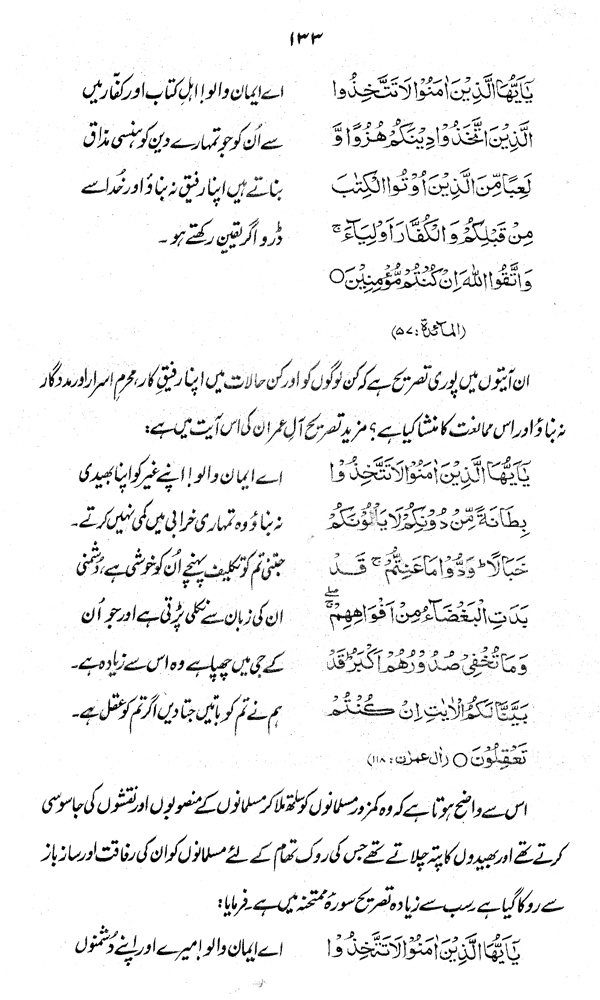 ۱۳۳
يٰٓاَيُّهَا الَّذِيْنَ اٰمَنُوْا لَا تَتَّخِذُوا
الَّذِيْنَ اتَّخَذُوْا دِيْنَكُمْ هُزُوًا وَّ
لَعِبًا مِّنَ الَّذِيْنَ اُوْتُوا الْكِتٰبَ
مِنْ قَبْلِكُمْ وَالْكُفَّارَ اَوْلِيَآءَ ۚ
وَاتَّقُوا اللّٰهَ اِنْ كُنْتُمْ مُّؤْمِنِيْنَ ○
(المآئدۃ: ۵۷)
اے ایمان والو! اہل کتاب اور کفار میں
سے اُن کو جو تمہارے دین کو ہنسی مذاق
بناتے ہیں اپنا رفیق نہ بناؤ اور خدا سے
ڈرو اگر یقین رکھتے ہو۔
ان آیتوں میں پوری تصریح ہے کہ کن لوگوں کو اور کن حالات میں اپنا رفیقِ کار، محرمِ اسرار اور مددگار
نہ بناؤ اور اس ممانعت کا منشا کیا ہے؟ مزید تصریح آلِ عمران کی اس آیت میں ہے:
يٰٓاَيُّهَا الَّذِيْنَ اٰمَنُوْا لَا تَتَّخِذُوْا
بِطَانَةً مِّنْ دُوْنِكُمْ لَا يَاْلُوْنَكُمْ
خَبَالًا ؕ وَدُّوْا مَا عَنِتُّمْ ۚ قَدْ
بَدَتِ الْبَغْضَآءُ مِنْ اَفْوَاهِهِمْ ۖۚ
وَمَا تُخْفِيْ صُدُوْرُهُمْ اَكْبَرُ ؕ قَدْ
بَيَّنَّا لَكُمُ الْاٰيٰتِ اِنْ كُنْتُمْ
تَعْقِلُوْنَ ○ (اٰل عمرٰن: ۱۱۸)
اے ایمان والو! اپنے غیر کو اپنا بھیدی
نہ بناؤ وہ تمہاری خرابی میں کمی نہیں کرتے۔
جتنی تم کو تکلیف پہنچے اُن کو خوشی ہے، دشمنی
ان کی زبان سے نکلی پڑتی ہے اور جو اُن
کے جی میں چھپا ہے وہ اس سے زیادہ ہے۔
ہم نے تم کو باتیں جتا دیں اگر تم کو عقل ہے۔
اس سے واضح ہوتا ہے کہ وہ کمزور مسلمانوں کو ساتھ ملا کر مسلمانوں کے منصوبوں اور نقشوں کی جاسوسی
کرتے تھے اور بھیدوں کا پتہ چلاتے تھے جس کی روک تھام کے لئے مسلمانوں کو ان کی رفاقت اور ساز باز
سے روکا گیا ہے۔ سب سے زیادہ تصریح سورۂ ممتحنہ میں ہے۔ فرمایا:
يٰٓاَيُّهَا الَّذِيْنَ اٰمَنُوْا لَا تَتَّخِذُوْا
اے ایمان والو! میرے اور اپنے دشمنوں